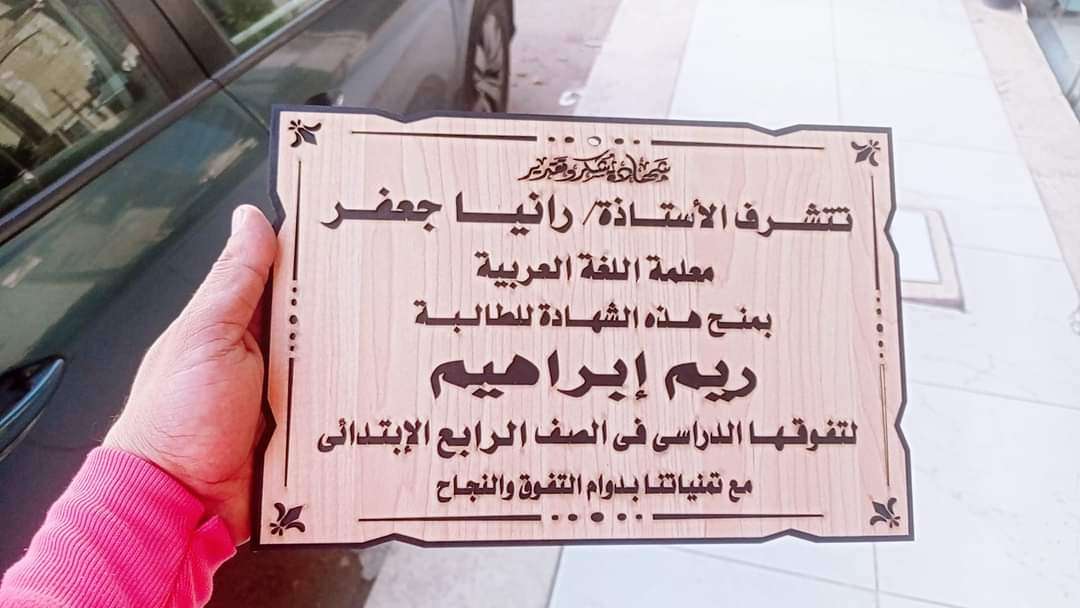 شهادة شكر وتقدير
تتشرف الأستاذة/ رانيا جعفر
معلمة اللغة العربية
بمنح هذه الشهادة للطالبة
ريم إبراهيم
لتفوقها الدراسى فى الصف الرابع الإبتدائى
مع تمنياتنا بدوام التفوق والنجاح